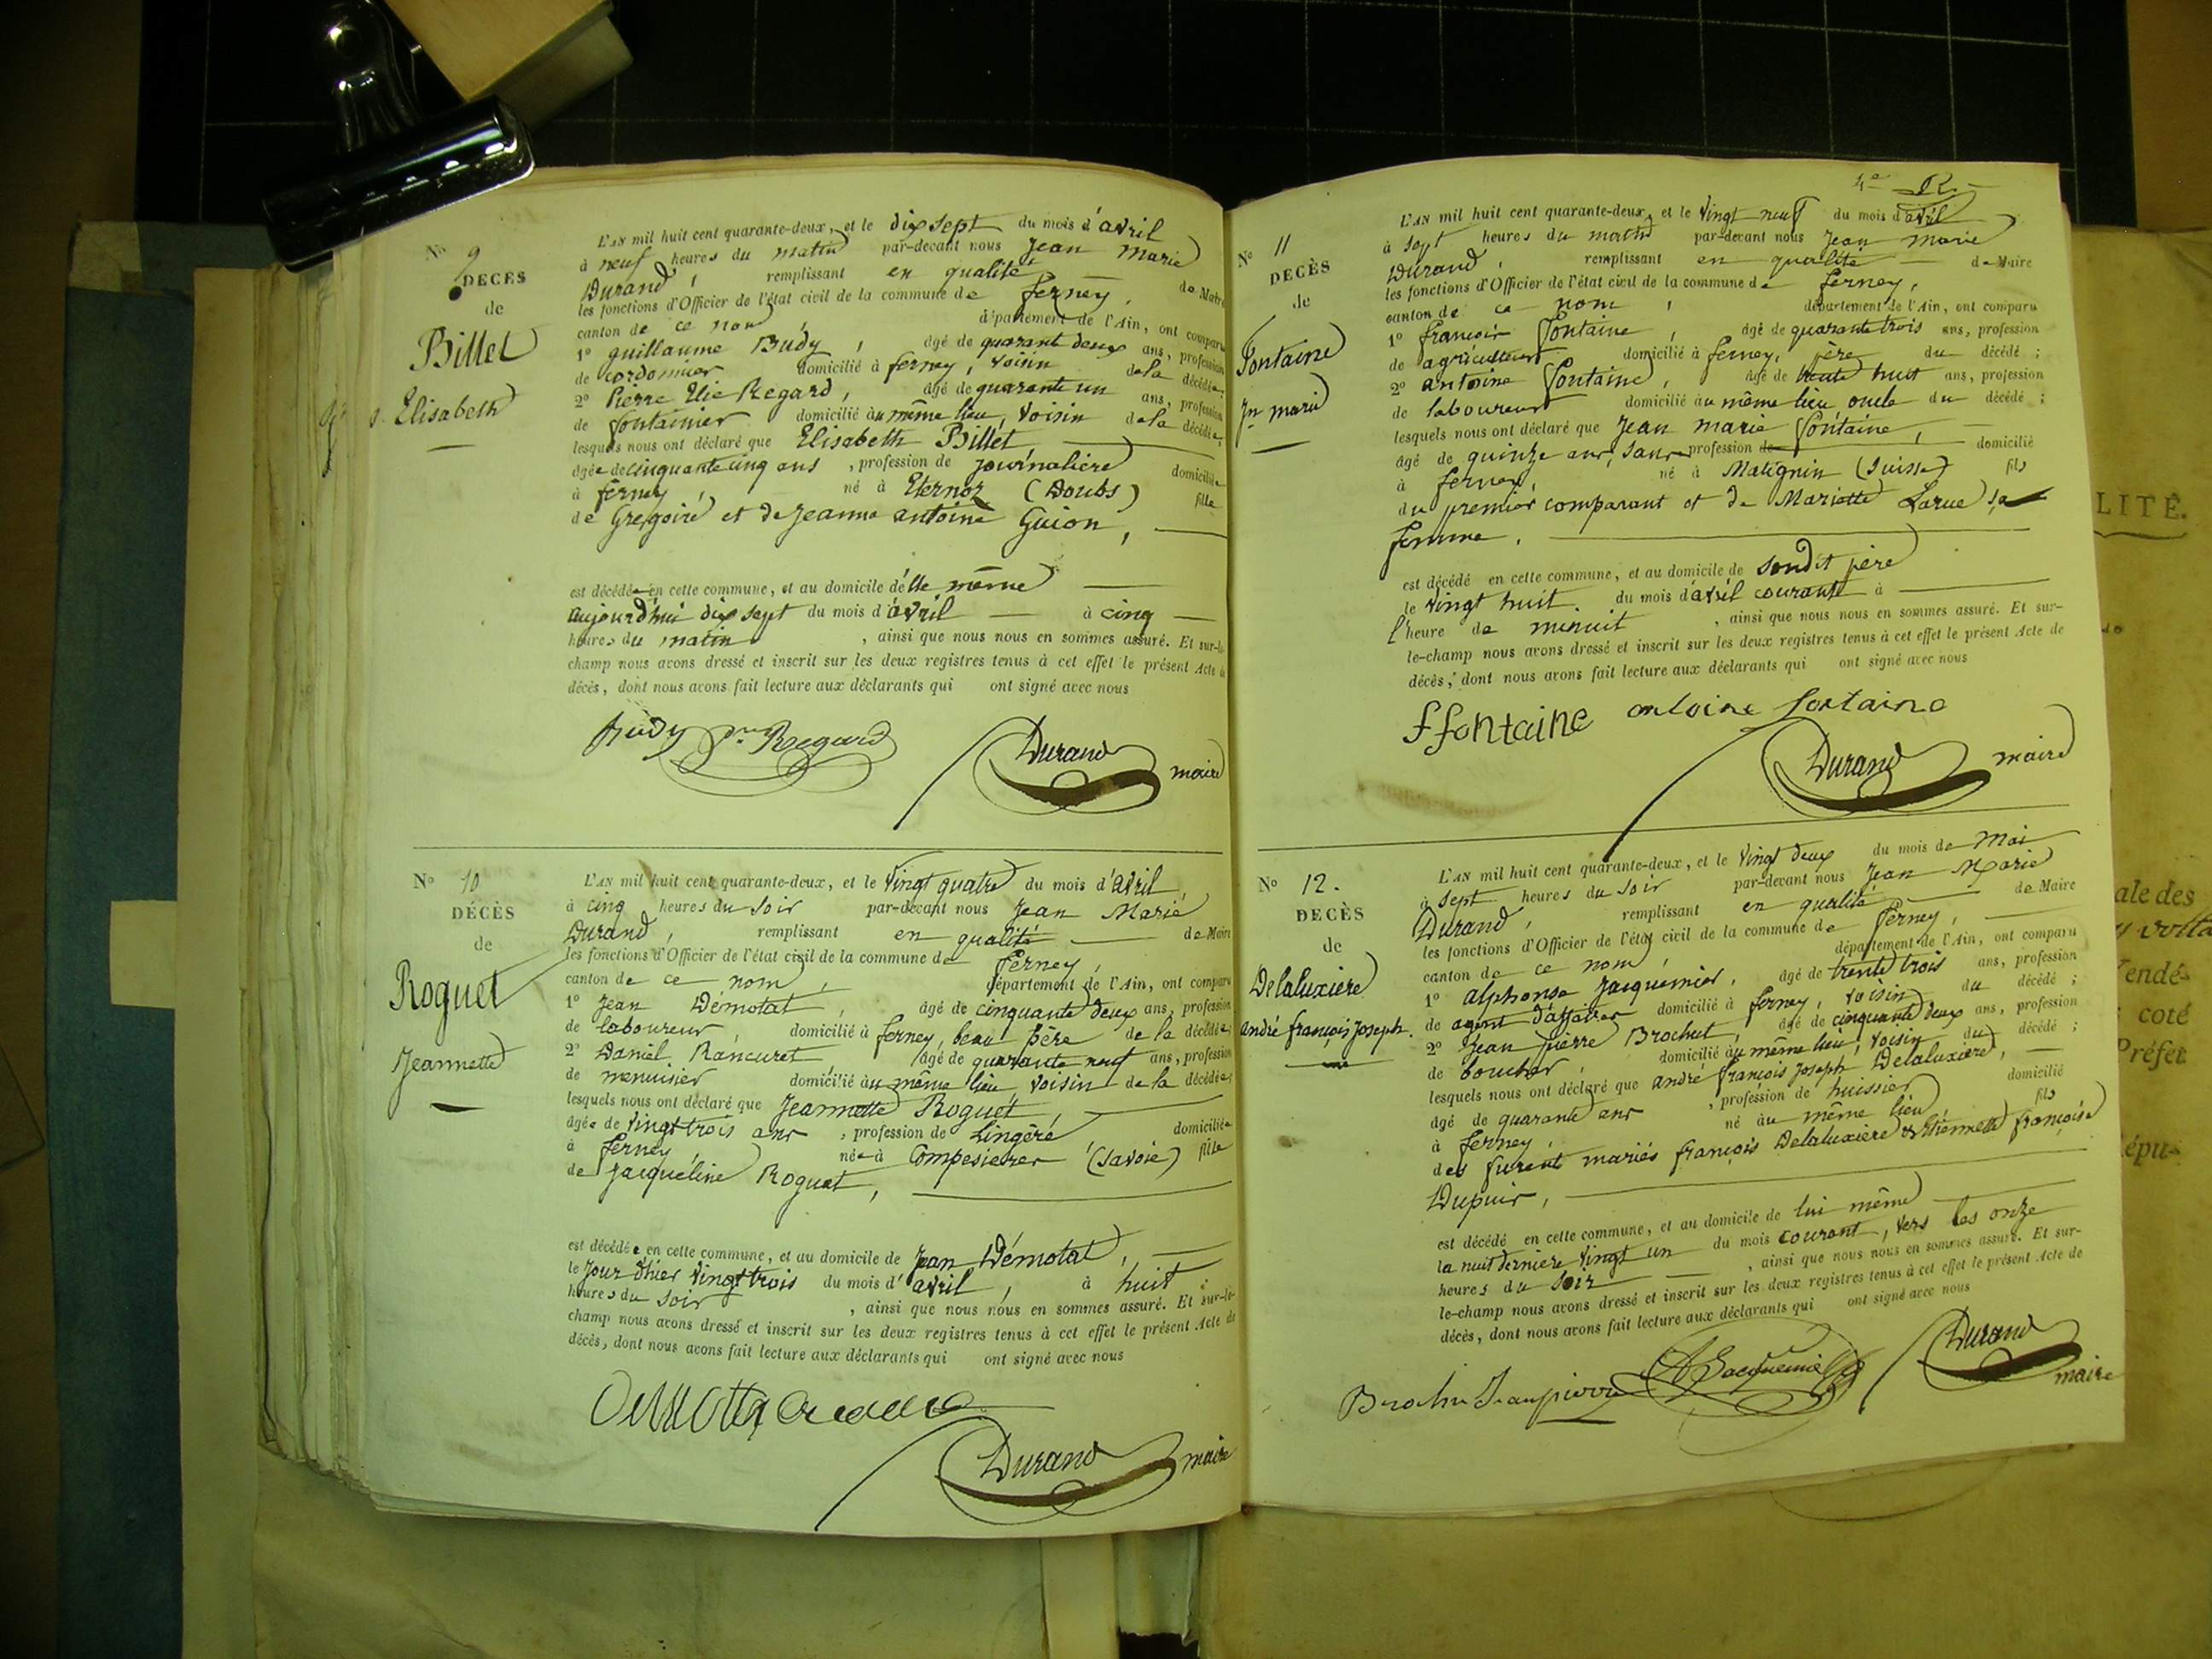 N° 9
DÉCÈS
de
Billet
Elisabeth
L'AN mil huit cent quarante-deux, et le dix sept du mois d'avril
à neuf heures du matin par-devant nous Jean Marie
Durand, remplissant en qualité de Maire
les fonctions d'Officier de l'état civil de la commune de ferney,
canton de ce nom, département de l'Ain, ont comparu
1° guillaume Budy, âgé de quarant deux ans, profession
de cordonnier domicilié à ferney, voisin de la décédée;
2° Pierre Elie Regard, âgé de quarante un ans, profession
de fontainier domicilié au même lieu, voisin de la décédée;
lesquels nous ont déclaré que Elisabeth Billet
âgée de cinquante cinq ans, profession de journalière domiciliée
à ferney, né à Eternoz (Doubs) fille
de Gregoire et de Jeanne antoine Guion,
est décédée en cette commune, et au domicile d'elle même
aujourd'hui dix sept du mois d'avril à cinq
heures du matin, ainsi que nous nous en sommes assuré. Et sur-le-
champ nous avons dressé et inscrit sur les deux registres tenus à cet effet le présent Acte de
décès, dont nous avons fait lecture aux déclarants qui ont signé avec nous
Budy Regard Durand maire
N° 10
DÉCÈS
de
Roguet
Jeannette
L'AN mil huit cent quarante-deux, et le vingt quatre du mois d'avril,
à cinq heures du soir par-devant nous Jean Marie
Durand, remplissant en qualité de Maire
les fonctions d'Officier de l'état civil de la commune de Ferney,
canton de ce nom, département de l'Ain, ont comparu
1° Jean Démotat, âgé de cinquante deux ans, profession
de laboureur, domicilié à ferney, beau père de la décédée;
2° Daniel Rancuret âgé de quarante neuf ans, profession
de menuisier domicilié au même lieu, voisin de la décédée;
lesquels nous ont déclaré que Jeannette Roguet,
âgée de vingt trois ans, profession de Lingère domiciliée
à ferney, née à Compesieres (Savoie) fille
de Jacqueline Roguet,
est décédée en cette commune, et au domicile de Jean Démotat,
le jour d'hier vingt trois du mois d'avril, à huit
heures du soir, ainsi que nous nous en sommes assuré. Et sur-le-
champ nous avons dressé et inscrit sur les deux registres tenus à cet effet le présent Acte de
décès, dont nous avons fait lecture aux déclarants qui ont signé avec nous
Durand maire
4e R.
N° 11
DÉCÈS
de
Fontaine
Jn marie
L'AN mil huit cent quarante-deux, et le vingt neuf du mois d'avril
à sept heures du matin par-devant nous Jean Marie
Durand, remplissant en qualité de Maire
les fonctions d'Officier de l'état civil de la commune de ferney,
canton de ce nom, département de l'Ain, ont comparu
1° françois fontaine, âgé de quarante trois ans, profession
de agriculteur domicilié à ferney, père du décédé;
2° antoine fontaine, âgé de trente huit ans, profession
de laboureur domicilié au même lieu oncle du décédé;
lesquels nous ont déclaré que Jean marie fontaine,
âgé de quinze ans, sans profession de domicilié
à ferney, né à Matignin (Suisse) fils
du premier comparant et de Mariette Larue sa
femme.
est décédé en cette commune, et au domicile de sondit père
le vingt huit. du mois d'avril courant à
l'heure de minuit, ainsi que nous nous en sommes assuré. Et sur-
le-champ nous avons dressé et inscrit sur les deux registres tenus à cet effet le présent Acte de
décès, dont nous avons fait lecture aux déclarants qui ont signé avec nous
ffontaine antoine fontaine
Durand maire
N° 12.
DÉCÈS
de
Delaluxiere
andré françois Joseph.
L'AN mil huit cent quarante-deux, et le vingt deux du mois de Mai
à sept heures du soir par-devant nous Jean Marie
Durand, remplissant en qualité de Maire
les fonctions d'Officier de l'état civil de la commune de ferney,
canton de ce nom, département de l'Ain, ont comparu
1° alphonse Jacquemier, âgé de trente trois ans, profession
de agent d'affaires domicilié à ferney, voisin du décédé;
2° Jean pierre Brochut, âgé de cinquante deux ans, profession
de boucher, domicilié au même lieu, voisin du décédé;
lesquels nous ont déclaré que andré françois Joseph Delaluxiere,
âgé de quarante ans, profession de huissier domicilié
à ferney, né au même lieu fils
des furent mariés françois Delaluxiere & Etiennette françoise
Dupuis,
est décédé en cette commune, et au domicile de lui même
la nuit derniere vingt un du mois courant, vers les onze
heures du soir, ainsi que nous nous en sommes assuré. Et sur-
le-champ nous avons dressé et inscrit sur les deux registres tenus à cet effet le présent Acte de
décès, dont nous avons fait lecture aux déclarants qui ont signé avec nous
Brochu Jean pierre A Jacquemier Durand
maire
LITÉ.
ale des
endé-
coté
Préfet
épu-